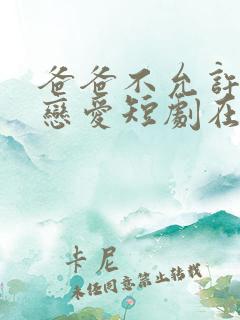 爸爸不允許
戀愛短劇在
卡尼
未經同意禁止轉載